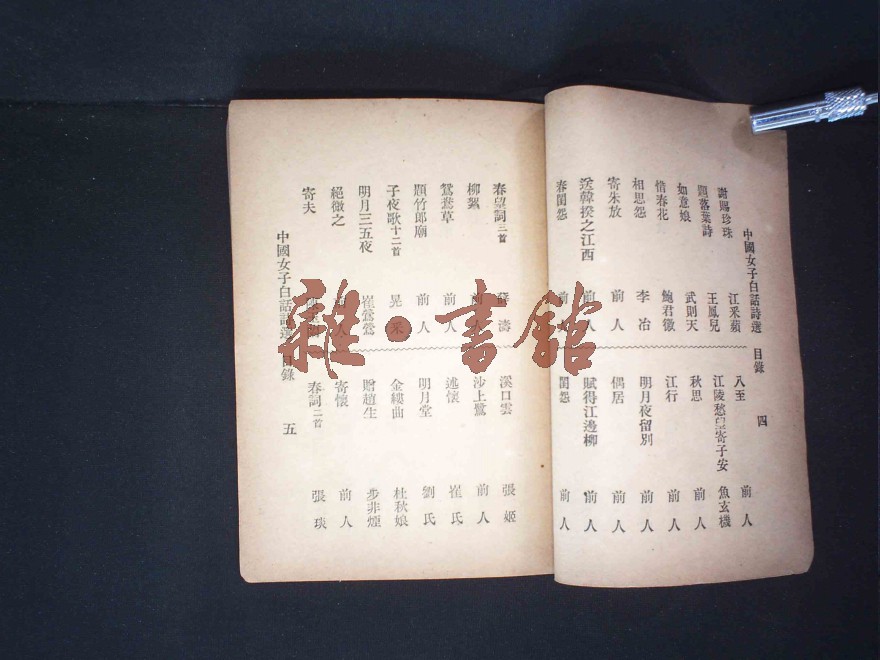 中國女子白話詩選 目錄 四
謝賜珍珠 江釆蘋
題落葉詩 王鳳兒
如意娘 武則天
惜春花 鮑君徽
相思怨 李冶
寄朱放 前人
送韓揆之江西 前人
春閨怨 前人
八至 前人
江陵愁望寄子安 魚玄機
秋思 前人
江行 前人
明月夜留別 前人
偶居 前人
賦得江邊柳 前人
閨怨 前人
春望詞三首 薛濤
柳絮 前人
鴛鴦草 前人
題竹郎廟 前人
子夜歌十二首 晁采
明月三五夜 崔鶯鶯
絕微之 前人
寄夫
溪口雲 張姬
沙上鷺 前人
述懷 崔氏
明月堂 劉氏
金縷曲 杜秋娘
贈趙生 步非煙
寄懷 前人
春詞二首 張琰
中國女子白話詩選 目錄 五
雜·書館